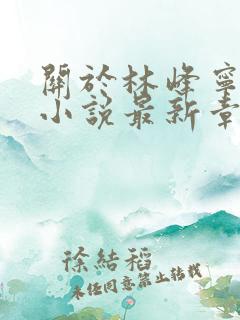 關於林峰寧
小說最新章
徐結稻
未经同意禁止转载